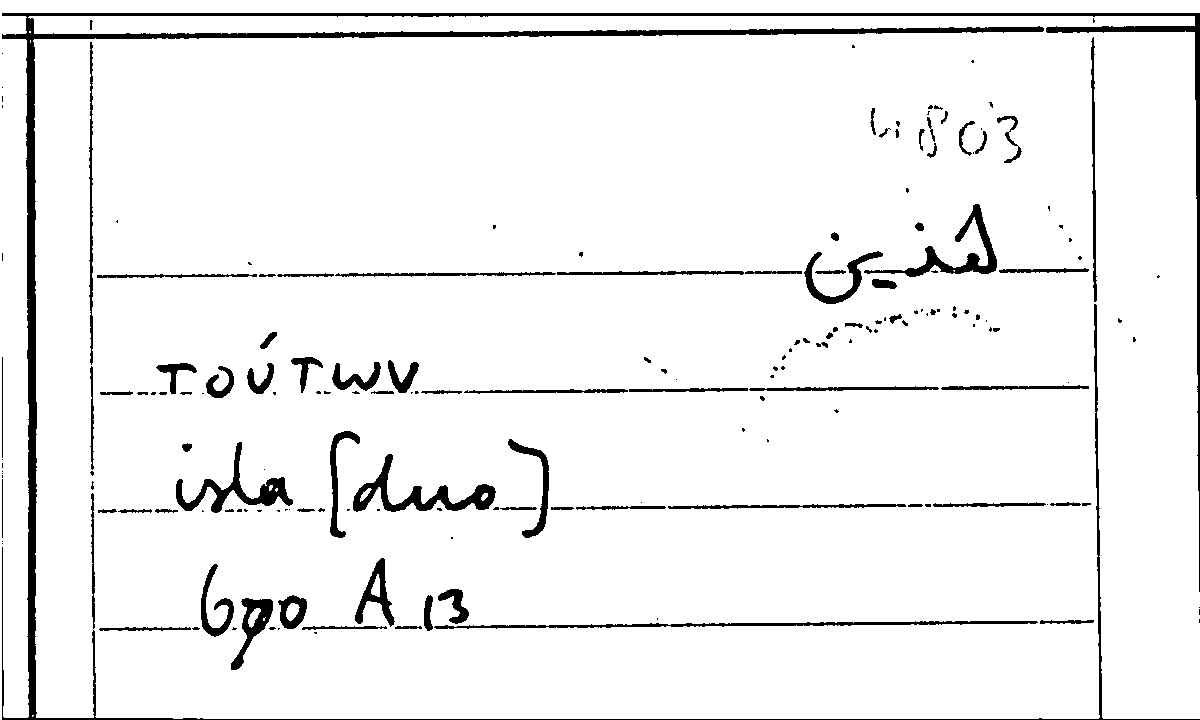 4803
هذين
τούτων
ista [duo]
670 A 13